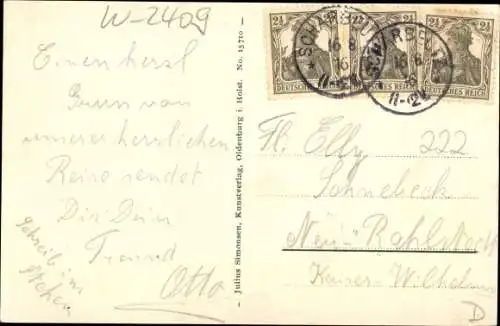 W-2409
Einen herzl
Gruss von
unserer herrlichen
Reise sendet
Dir Dein
Freund
Otto
Schreib im
Stehen
— Julius Simonsen, Kunstverlag, Oldenburg i. Holst. No. 15710 —
2½ 2½ 2½
DEUTSCHES REICH DEUTSCHES REICH DEUTSCHES REICH
SCHARBEUTZ
16.8.16
11-12V
SCHARBEUTZ
16.8.16
11-12V
Frl. Elly 222
Schnebeck
Neu-Rahlstedt
Kaiser-Wilhelm
D